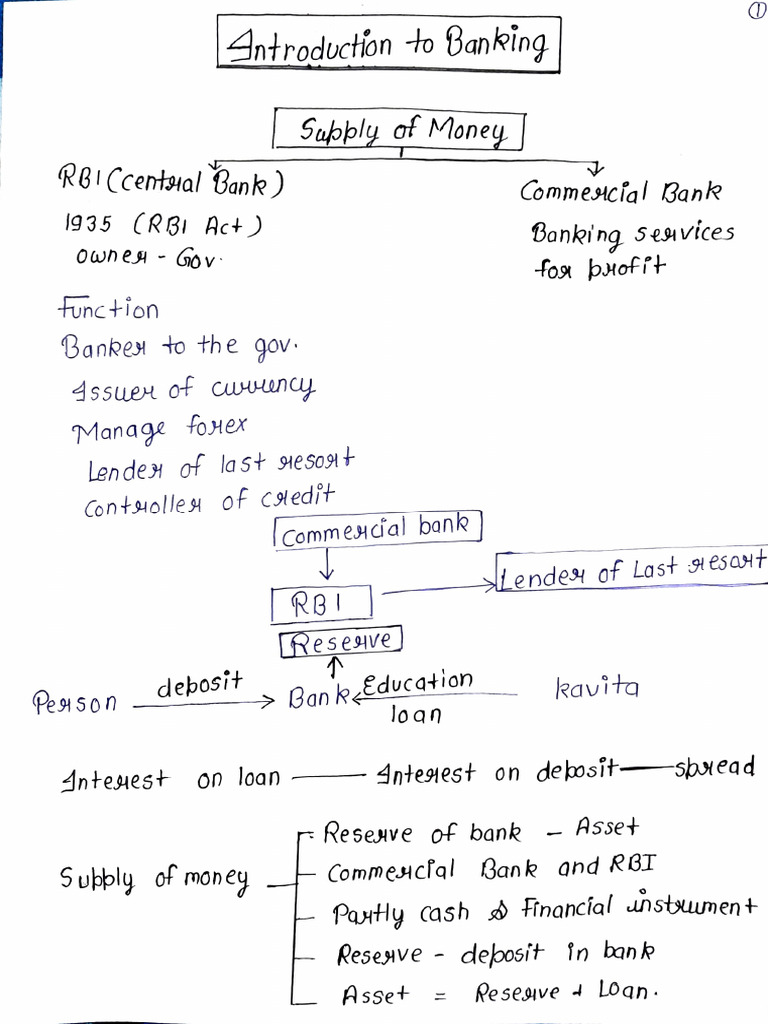 1
Introduction to Banking
Supply of Money
RBI (Central Bank)
1935 (RBI Act)
owner - Gov.
Commercial Bank
Banking services
for profit
Function
Banker to the gov.
Issuer of currency
Manage forex
Lender of last resort
Controller of credit
Commercial bank
RBI
Lender of Last resort
Reserve
Person deposit Bank Education loan kavita
Interest on loan — Interest on deposit — spread
Supply of money
Reserve of bank - Asset
Commercial Bank and RBI
Partly cash & Financial instrument
Reserve - deposit in bank
Asset = Reserve + Loan.